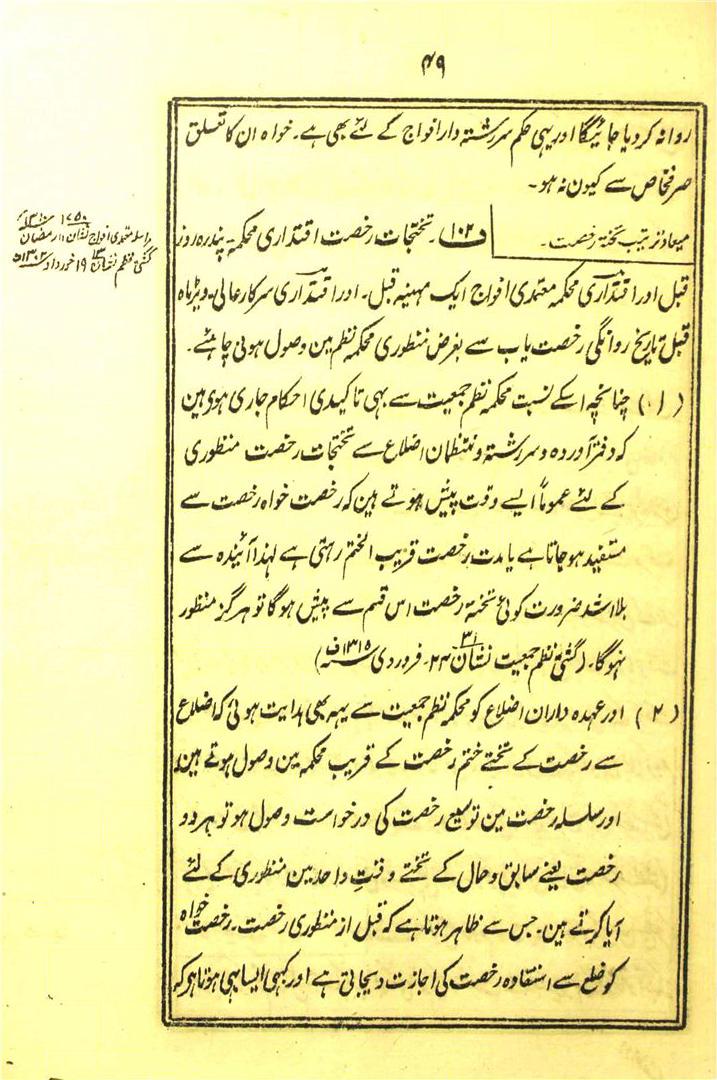 ۴۹
روانہ کردیا جائیگا اور یہی حکم سررشتہ دار افواج کے لئے بھی ہے۔ خواہ ان کا تعلق
صرفخاص سے کیون نہ ہو۔
میعاد ترتیب تختۂ رخصت۔
ف (۱۰۲)۔ تختجات رخصت اقتداری محکمہ۔ پندرہ روز
قبل اور اقتداری محکمہ معتمدی افواج ایک مہینہ قبل۔ اور اقتداری سرکار عالی۔ ڈیڑہ ماہ
قبل تاریخ روانگی رخصت یاب سے بغرض منظوری محکمہ نظم مین وصول ہونی چاہئے۔
(۱) چنانچہ اسکے نسبت محکمہ نظم جمعیت سے بہی تاکیدی احکام جاری ہوی ہین
کہ دفتر آوردہ و سررشتہ و منتظمان اضلاع سے تختجات رخصت منظوری
کے لئے عموماً ایسے وقت پیش ہوتے ہین کہ رخصت خواہ رخصت سے
مستفید ہو جاتا ہے یا مدت رخصت قریب الختم رہتی ہے لہذا آئندہ سے
بلا اشد ضرورت کوئی تختۂ رخصت اس قسم سے پیش ہوگا تو ہرگز منظور
نہوگا۔ (گشتی نظم جمعیت نشان ۳۱ ۲۴۔ فروردی ۱۳۱۵ف)
(۲) اور عہدہ داران اضلاع کو محکمہ نظم جمعیت سے یہہ بھی ہدایت ہوئی کہ اضلاع
سے رخصت کے تختے ختم رخصت کے قریب محکمہ مین وصول ہوتے ہین
اور سلسلہ رخصت مین توسیع رخصت کی درخواست وصول ہو تو ہر دو
رخصت یعنے سابق و حال کے تختے وقتِ واحد مین منظوری کے لئے
آیا کرتے ہین۔ جس سے ظاہر ہوتا ہے کہ قبل از منظوری رخصت۔ رخصت خواہ
کو ضلع سے استفادہ رخصت کی اجازت دیجاتی ہے اور کبہی ایسا بہی ہوتا ہو کہ
مراسلہ معتمدی افواج نشان ۱۷۵۰ ۱۰ رمضان
گشتی نظم نشان ۱۳ ۱۹ خورداد